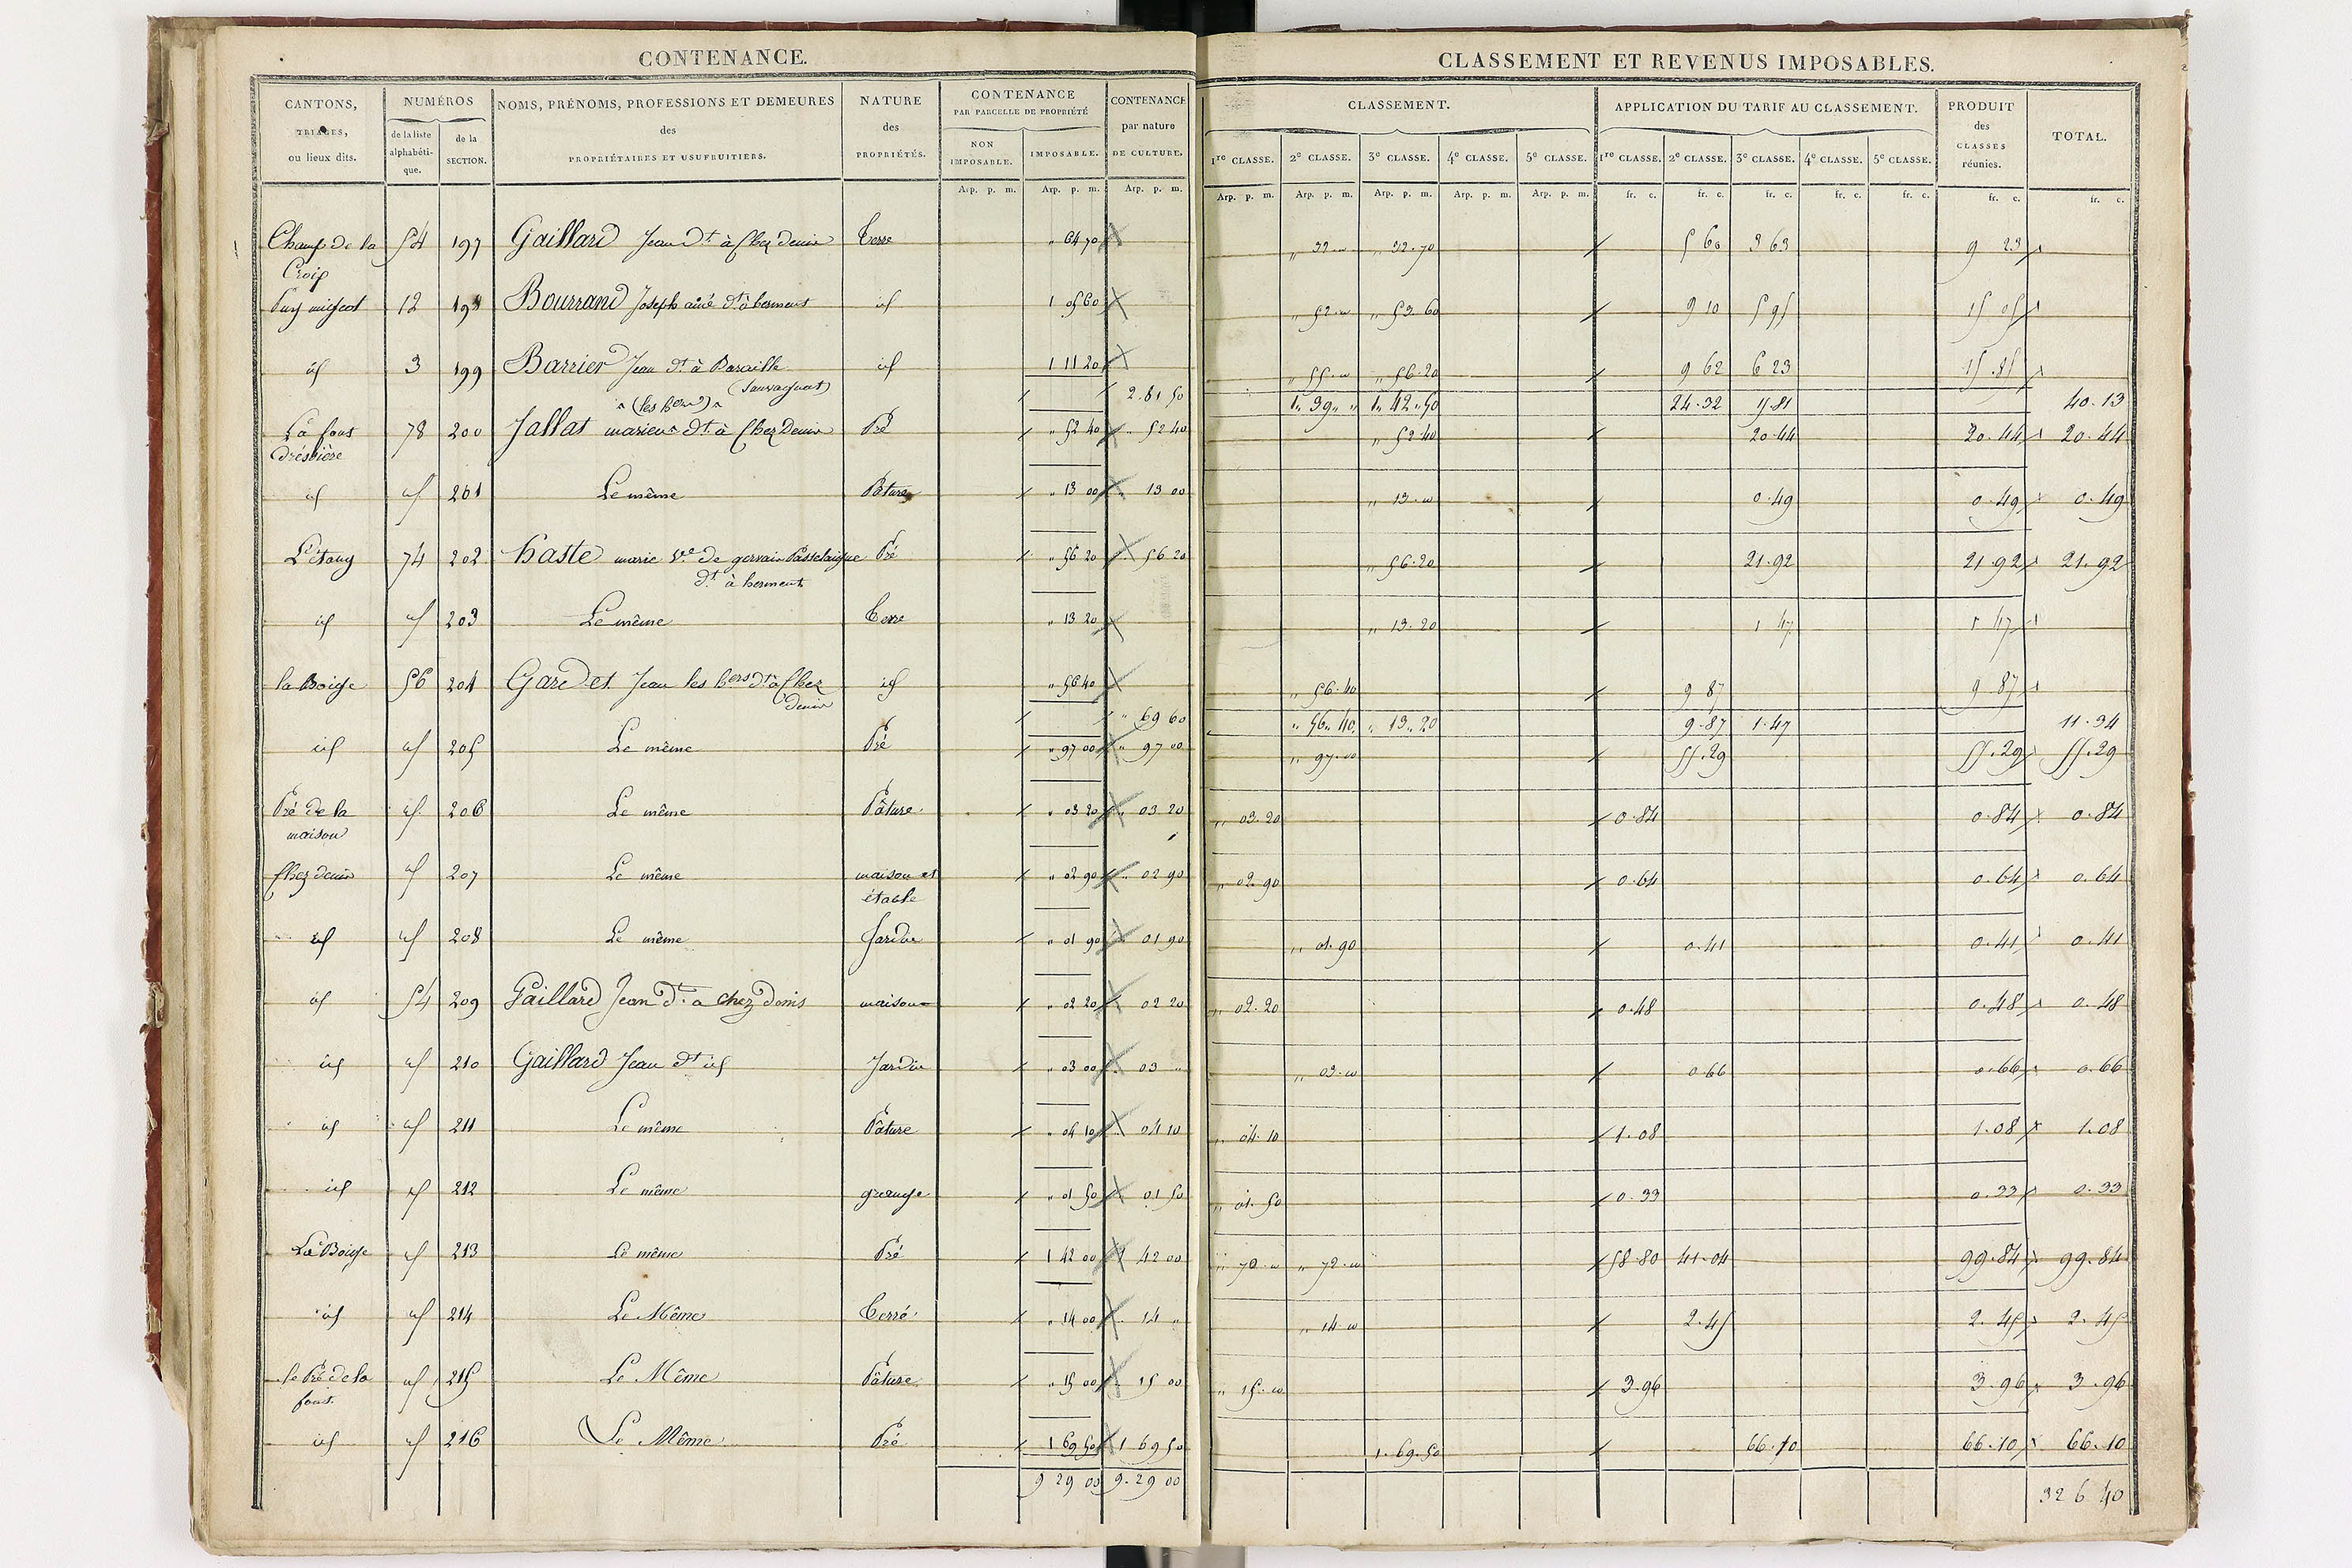 CONTENANCE.
CANTONS, TRIAGES, ou lieux dits.
NUMÉROS
de la liste alphabéti-que.
de la SECTION.
NOMS, PRÉNOMS, PROFESSIONS ET DEMEURES
des
PROPRIÉTAIRES ET USUFRUITIERS.
NATURE des PROPRIÉTÉS.
CONTENANCE PAR PARCELLE DE PROPRIÉTÉ
NON IMPOSABLE.
IMPOSABLE.
CONTENANCE par nature DE CULTURE.
Arp. p. m. Arp. p. m. Arp. p. m.
CLASSEMENT ET REVENUS IMPOSABLES.
CLASSEMENT.
1re CLASSE. 2e CLASSE. 3e CLASSE. 4e CLASSE. 5e CLASSE.
APPLICATION DU TARIF AU CLASSEMENT.
1re CLASSE. 2e CLASSE. 3e CLASSE. 4e CLASSE. 5e CLASSE.
PRODUIT des CLASSES réunies.
TOTAL.
Arp. p. m. Arp. p. m. Arp. p. m. Arp. p. m. Arp. p. m. fr. c. fr. c. fr. c. fr. c. fr. c. fr. c. fr. c.
Champ de la 54 197 Gaillard Jean dt à Chez denis Terre " 64 70 " 32 " " 32.70 5 60 3 63 9 23
Croix
12 198 Bourrand Joseph ainé dt à herment id 1 05 60 " 52 " " 53.60 9 10 5 95 15 05
id 3 199 Barrier Jean dt à id 1 11 20 " 55 " " 56.20 9 62 6 23 15 85
(Sauvagnat)
2.81 50 1" 39 " " 1" 42 " 50 24.32 15 81 40.13
(les hers)
La font 78 200 Jallat dt à Chez Denis Pré " 52 40 " 52 40 " 52.40 20.44 20.44 20.44
id id 201 Le même Pâture " 13 00 " 13 00 " 13 " 0.49 0.49 0.49
L'étang 74 202 haste marie Ve de gervais Passelaigue Pré " 56 20 56 20 " 56.20 21.92 21.92 21.92
dt à herment
id id 203 Le même Terre " 13 20 " 13.20 1 47 1 47
la Boige 56 204 Gardet Jean les hers dt à Chez id " 56 40 " 56.40 9 87 9 87
denis
" 69 60 " 56.40 " 13.20 9.87 1.47 11.34
id id 205 Le même Pré " 97 00 " 97 00 " 97.00 55.29 55.29 55.29
Pré de la id 206 Le même Pâture " 03 20 " 03 20 " 03.20 0.84 0.84 0.84
maison
Chez denis id 207 Le même maison et " 02 90 " 02 90 " 02.90 0.64 0.64 0.64
étable
id id 208 Le même Jardin " 01 90 " 01 90 " 01.90 0.41 0.41 0.41
id 54 209 Gaillard Jean dt a chez denis maison " 02 20 02 20 " 02.20 0.48 0.48 0.48
id id 210 Gaillard Jean dt id Jardin " 03 00 03 " " 03.00 0.66 0.66 0.66
id id 211 Le même Pâture " 04 10 04 10 " 04.10 1.08 1.08 1.08
id id 212 Le même grange " 01 50 01 50 " 01.50 0.33 0.33 0.33
La Boige id 213 Le même Pré 1 42 00 1 42 00 " 70.00 " 72.00 58.80 41.04 99.84 99.84
id id 214 Le Même Terre " 14 00 " 14 " " 14 00 2.45 2.45 2.45
le Pré de la id 215 Le Même Pâture " 15 00 " 15 00 " 15.00 3.96 3.96 3.96
font
id id 216 Le Même Pré 1 69 50 1 69 50 1.69.50 66.10 66.10 66.10
9 29 00 9.29 00 326 40